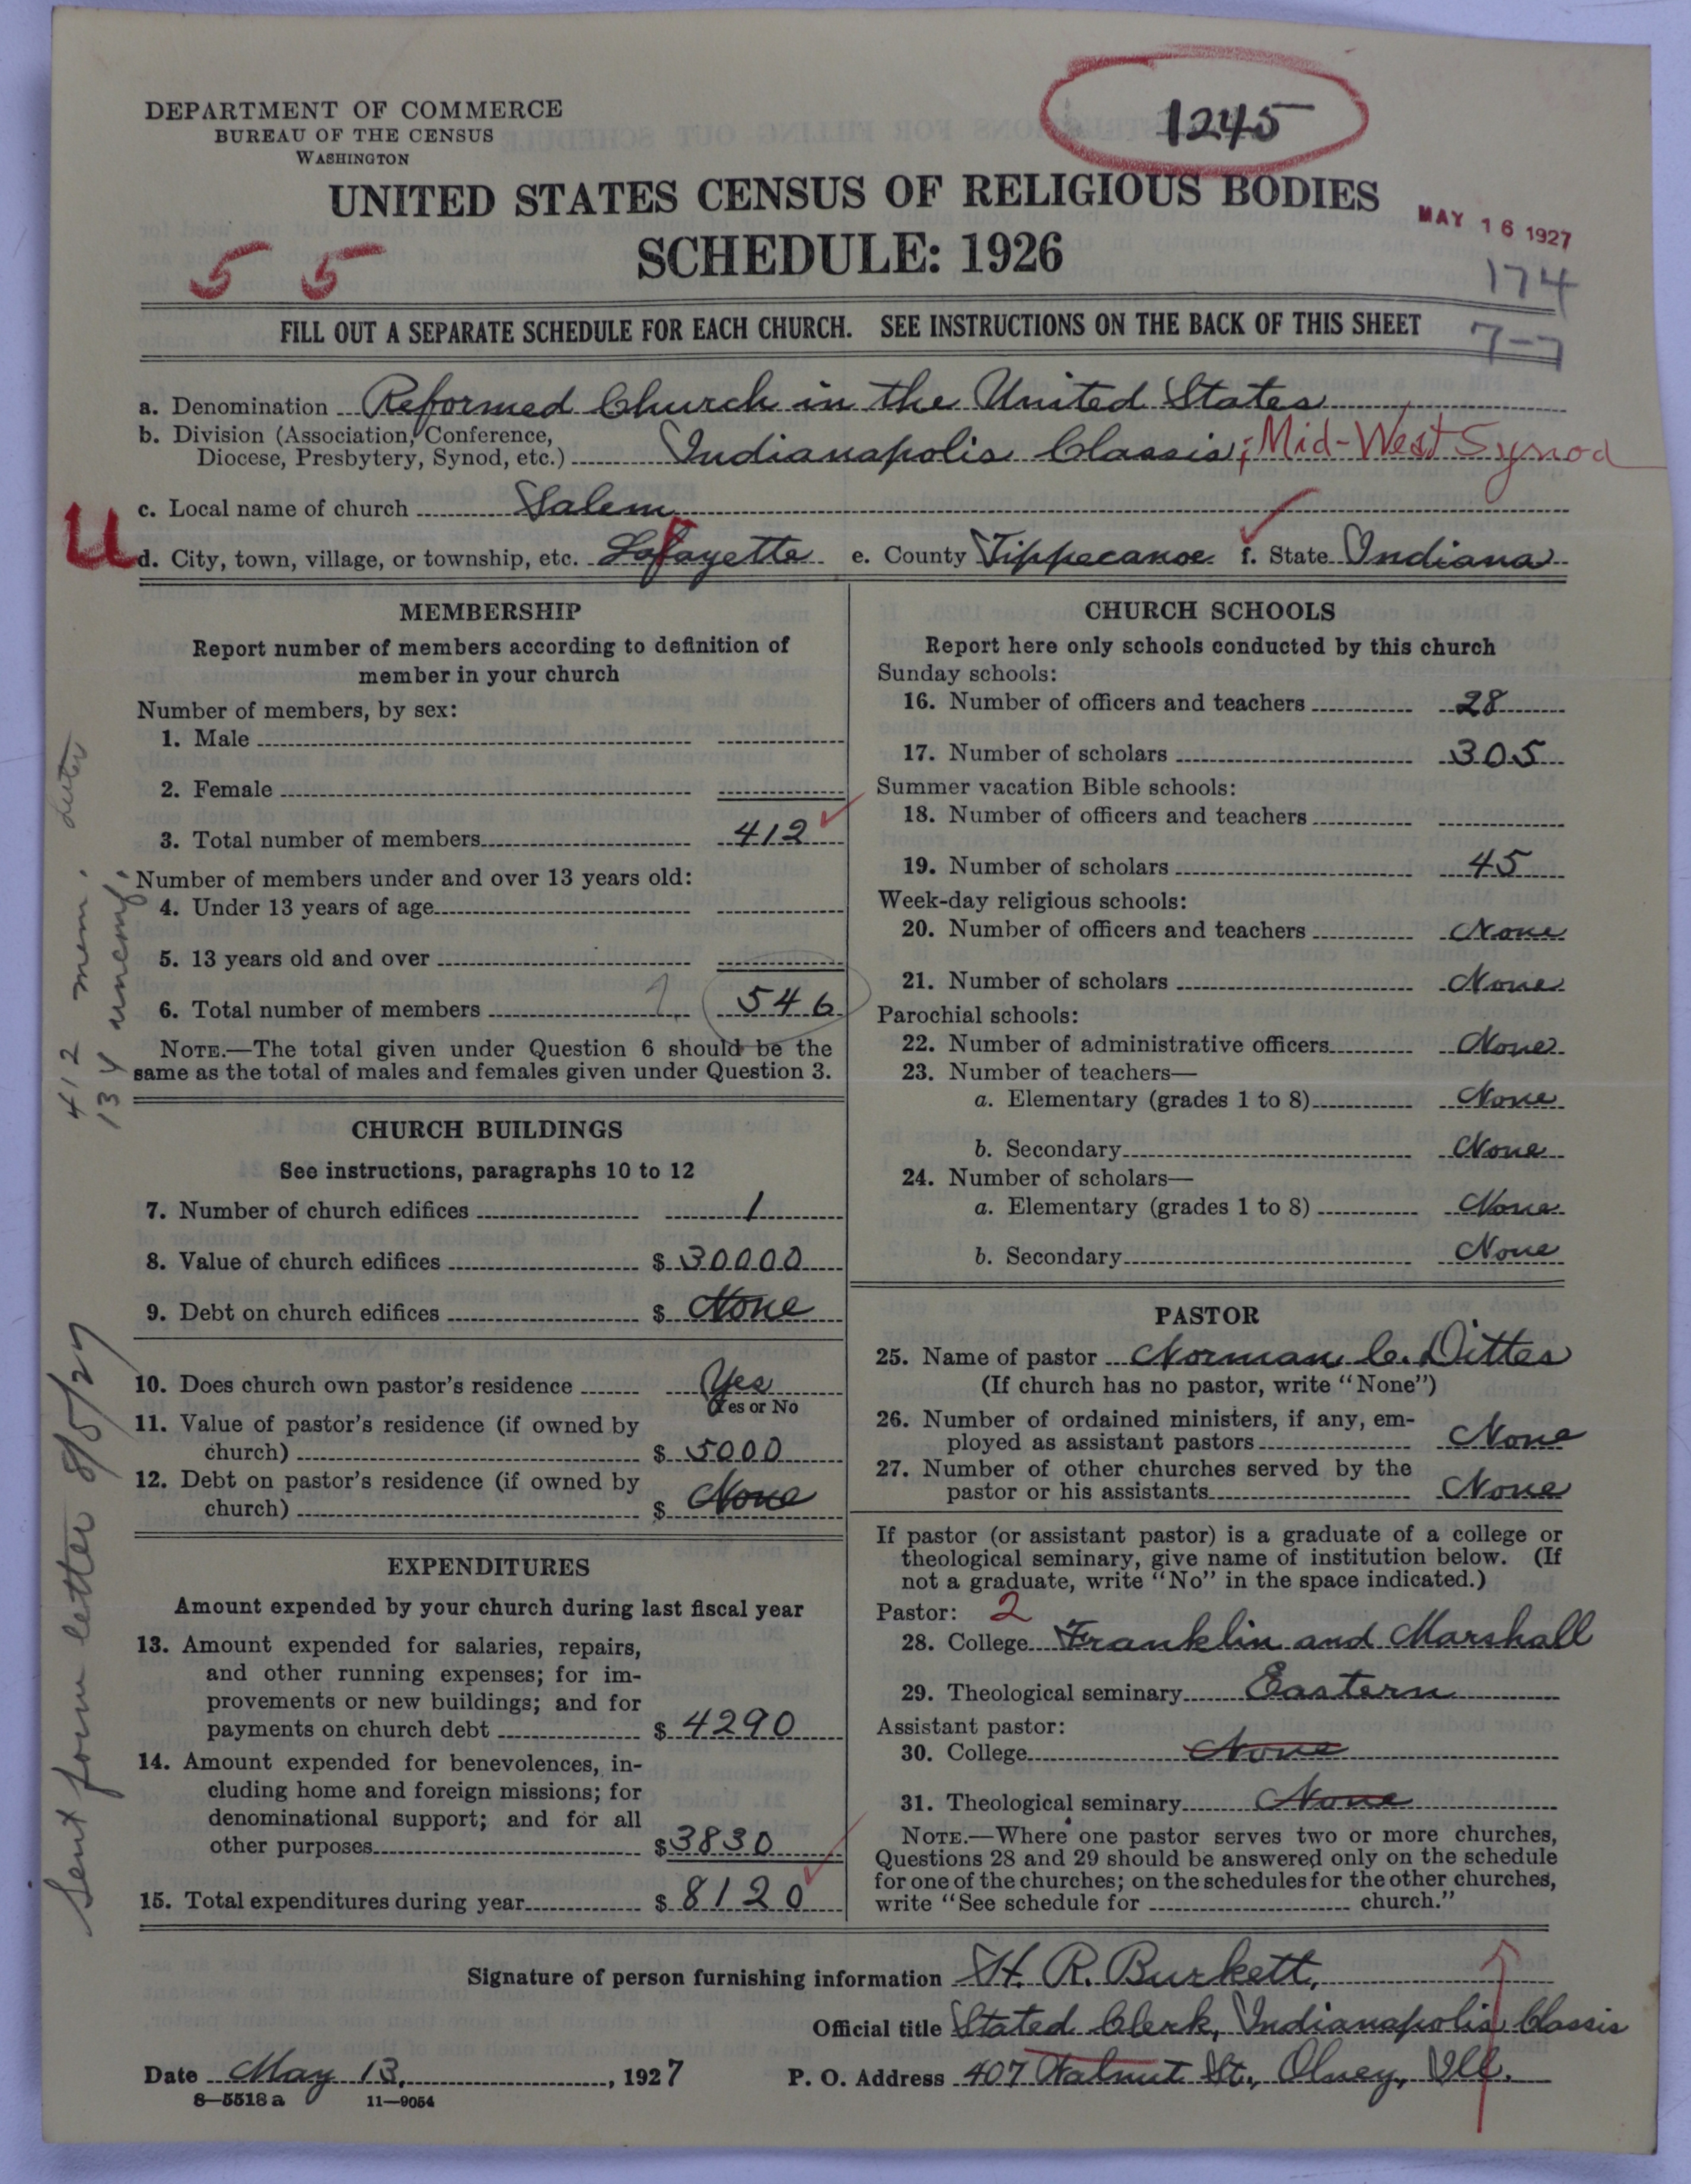 DEPARTMENT OF COMMERCE
BUREAU OF THE CENSUS
WASHINGTON
1245
UNITED STATES CENSUS OF RELIGIOUS BODIES
SCHEDULE: 1926
MAY 16 1927
174
5 5
FILL OUT A SEPARATE SCHEDULE FOR EACH CHURCH. SEE INSTRUCTIONS ON THE BACK OF THIS SHEET
7-7
a. Denomination Reformed Church in the United States
b. Division (Association, Conference,
Diocese, Presbytery, Synod, etc.) Indianapolis Classis; Mid-West Synod
c. Local name of church Salem
U
d. City, town, village, or township, etc. Lafayette e. County Tippecanoe f. State Indiana
MEMBERSHIP
Report number of members according to definition of
member in your church
Number of members, by sex:
1. Male
2. Female
3. Total number of members 412
Number of members under and over 13 years old:
4. Under 13 years of age
5. 13 years old and over
6. Total number of members 546
NOTE.—The total given under Question 6 should be the
same as the total of males and females given under Question 3.
CHURCH BUILDINGS
See instructions, paragraphs 10 to 12
7. Number of church edifices 1
8. Value of church edifices $ 30000
9. Debt on church edifices $ None
10. Does church own pastor's residence Yes
Yes or No
11. Value of pastor's residence (if owned by
church) $ 5000
12. Debt on pastor's residence (if owned by
church) $ None
EXPENDITURES
Amount expended by your church during last fiscal year
13. Amount expended for salaries, repairs,
and other running expenses; for im-
provements or new buildings; and for
payments on church debt $ 4290
14. Amount expended for benevolences, in-
cluding home and foreign missions; for
denominational support; and for all
other purposes $ 3830
15. Total expenditures during year $ 8120
CHURCH SCHOOLS
Report here only schools conducted by this church
Sunday schools:
16. Number of officers and teachers 28
17. Number of scholars 305
Summer vacation Bible schools:
18. Number of officers and teachers
19. Number of scholars 45
Week-day religious schools:
20. Number of officers and teachers None
21. Number of scholars None
Parochial schools:
22. Number of administrative officers None
23. Number of teachers—
a. Elementary (grades 1 to 8) None
b. Secondary None
24. Number of scholars—
a. Elementary (grades 1 to 8) None
b. Secondary None
PASTOR
25. Name of pastor Norman C. Dittes
(If church has no pastor, write "None")
26. Number of ordained ministers, if any, em-
ployed as assistant pastors None
27. Number of other churches served by the
pastor or his assistants None
If pastor (or assistant pastor) is a graduate of a college or
theological seminary, give name of institution below. (If
not a graduate, write "No" in the space indicated.)
Pastor: 2
28. College Franklin and Marshall
29. Theological seminary Eastern
Assistant pastor:
30. College None
31. Theological seminary None
NOTE.—Where one pastor serves two or more churches,
Questions 28 and 29 should be answered only on the schedule
for one of the churches; on the schedules for the other churches,
write "See schedule for church."
Signature of person furnishing information H. R. Burkett,
Official title Stated Clerk, Indianapolis Classis
Date May 13, 1927 P. O. Address 407 Walnut St., Olney, Ill.
8-5518a 11-9054
412 mem. Letter
134 unconf.
Sent form letter 8/5/27